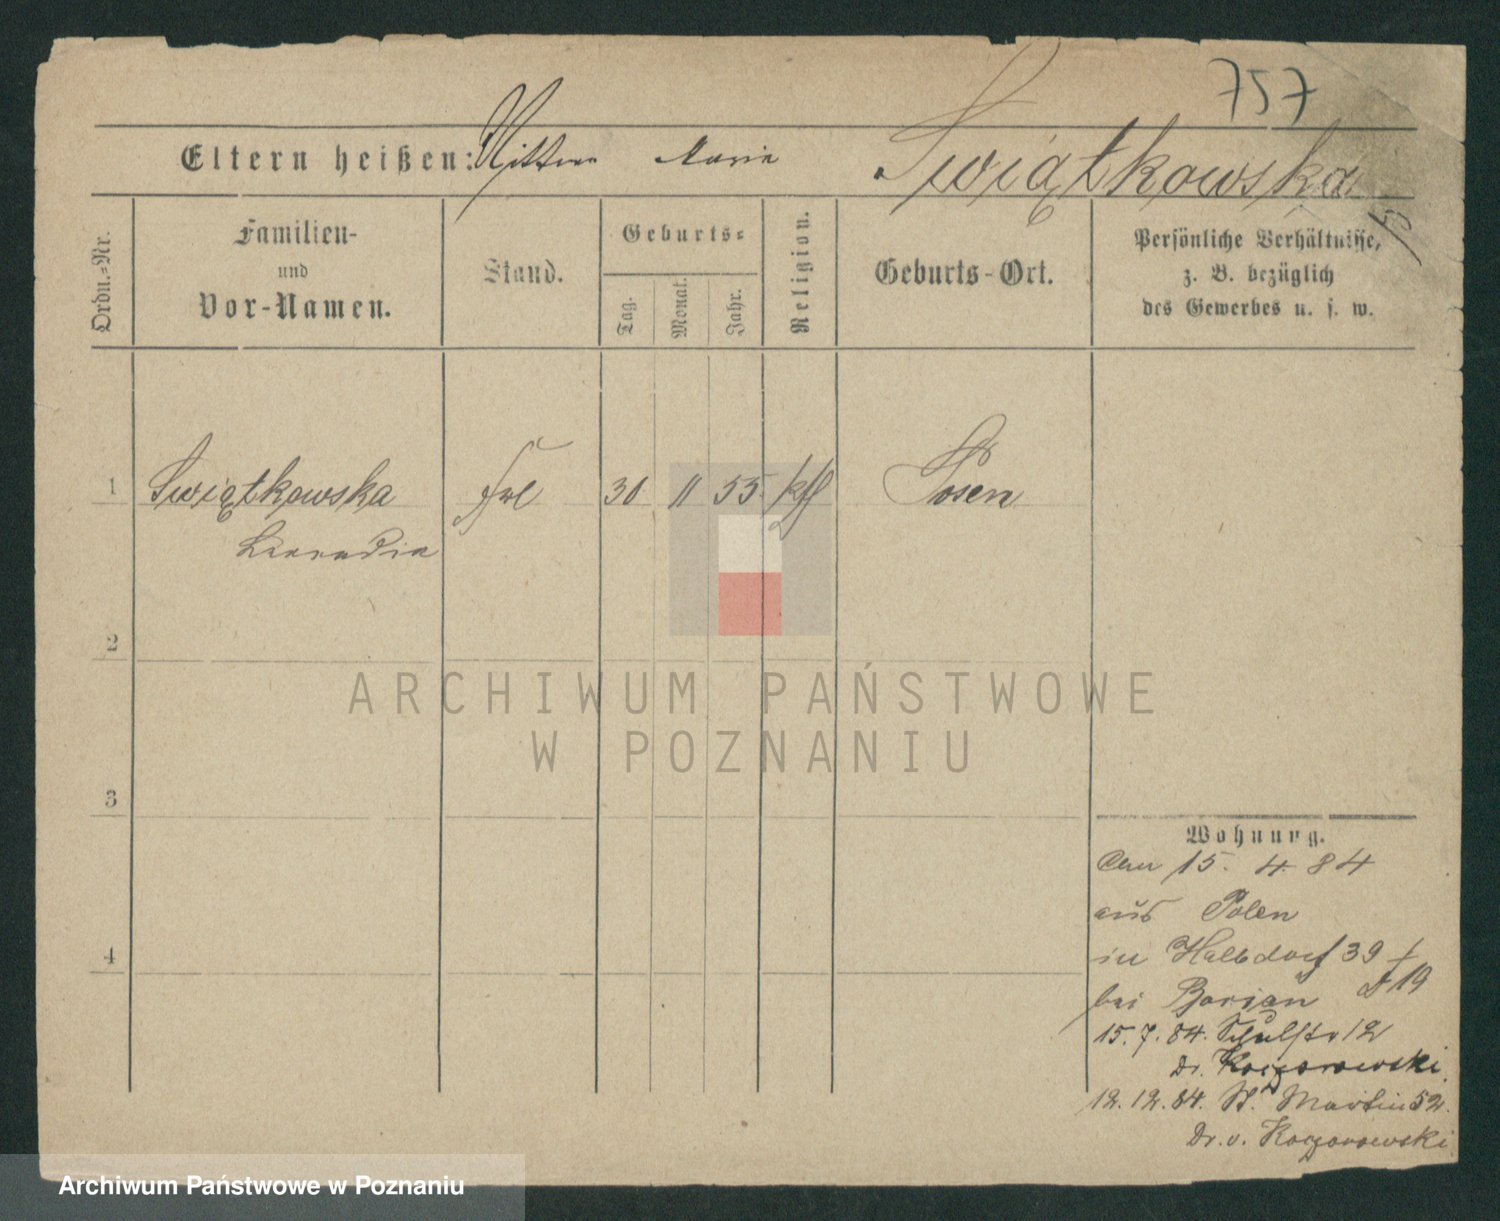 757
Eltern heißen: Maria Swiątkowska
Ordn.=Nr.
Familien-
und
Vor-Namen.
Stand.
Geburts=
Tag.
Monat.
Jahr.
Religion.
Geburts-Ort.
Persönliche Verhältnisse,
z. B. bezüglich
des Gewerbes u. s. w.
1 Swiątkowska Frl 30 11 55 kth Posen
2
3
4
Wohnung.
15. 4. 84
aus Polen
in Halbdorf 39
bei
15. 7. 84. Schulstr 12
Dr. Koczorowski
12. 12. 84. St. Martin 52.
Dr. v. Koczorowski
ARCHIWUM PAŃSTWOWE
W POZNANIU
Archiwum Państwowe w Poznaniu